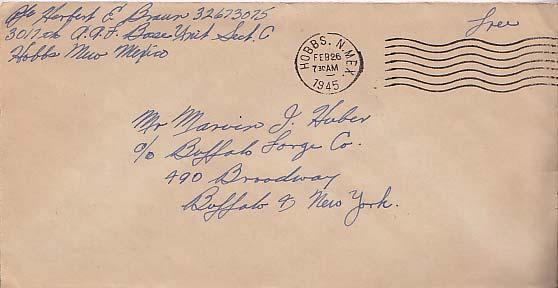 Pfc Herbert E. Braun 32673075
3017th A.A.F. Base Unit Sect. C
Hobbs New Mexico
Free
HOBBS, N. MEX.
FEB 26
7 30 AM
1945
Mr Marvin J. Huber
c/o Buffalo Forge Co.
490 Broadway
Buffalo 4 New York.